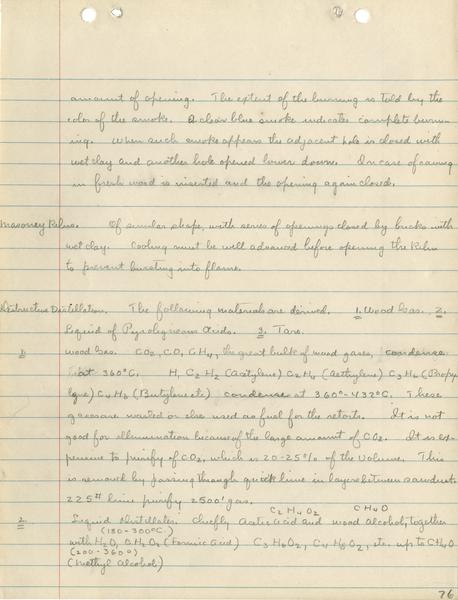 amount of opening. The extent of the burning is told by the
color of the smoke. A clear blue smoke indicates complete burn-
ing. When such smoke appears the adjacent hole is closed with
wet clay and another hole opened lower down. In case of caving
in fresh wood is inserted and the opening again closed.
Masonry Kilns. Of similar shape, with series of openings closed by bricks with
wet clay. Cooling must be well advanced before opening the kiln
to prevent bursting into flame.
Destructive Distillation. The following materials are derived. 1. Wood Gas. 2.
Liquid of Pyroligneous Acids. 3. Tars.
1. Wood Gas. CO2, CO, CH4, the great bulk of wood gases, condense
at 360°C. H, C2H2 (Acetylene) C2H4 (Aethylene) C3H6 (Propy-
lene) C4H8 (Butylene etc) condense at 360°-432°C. These
gases are wasted or else used as fuel for the retorts. It is not
good for illumination because of the large amount of CO2. It is ex-
pensive to purify of CO2, which is 20-25% of the volume. This
is removed by passing through quick lime in layers between sawdust.
225# lime purify 2500' gas.
C2H4O2 CH4O
2. Liquid Distillates. Chiefly Acetic Acid and wood Alcohol, together
(180-300°C)
with H2O, CH2O2 (Formic Acid) C3H6O2, C4H8O2, etc. up to CH4O
(200-360°)
(Methyl Alcohol)
76